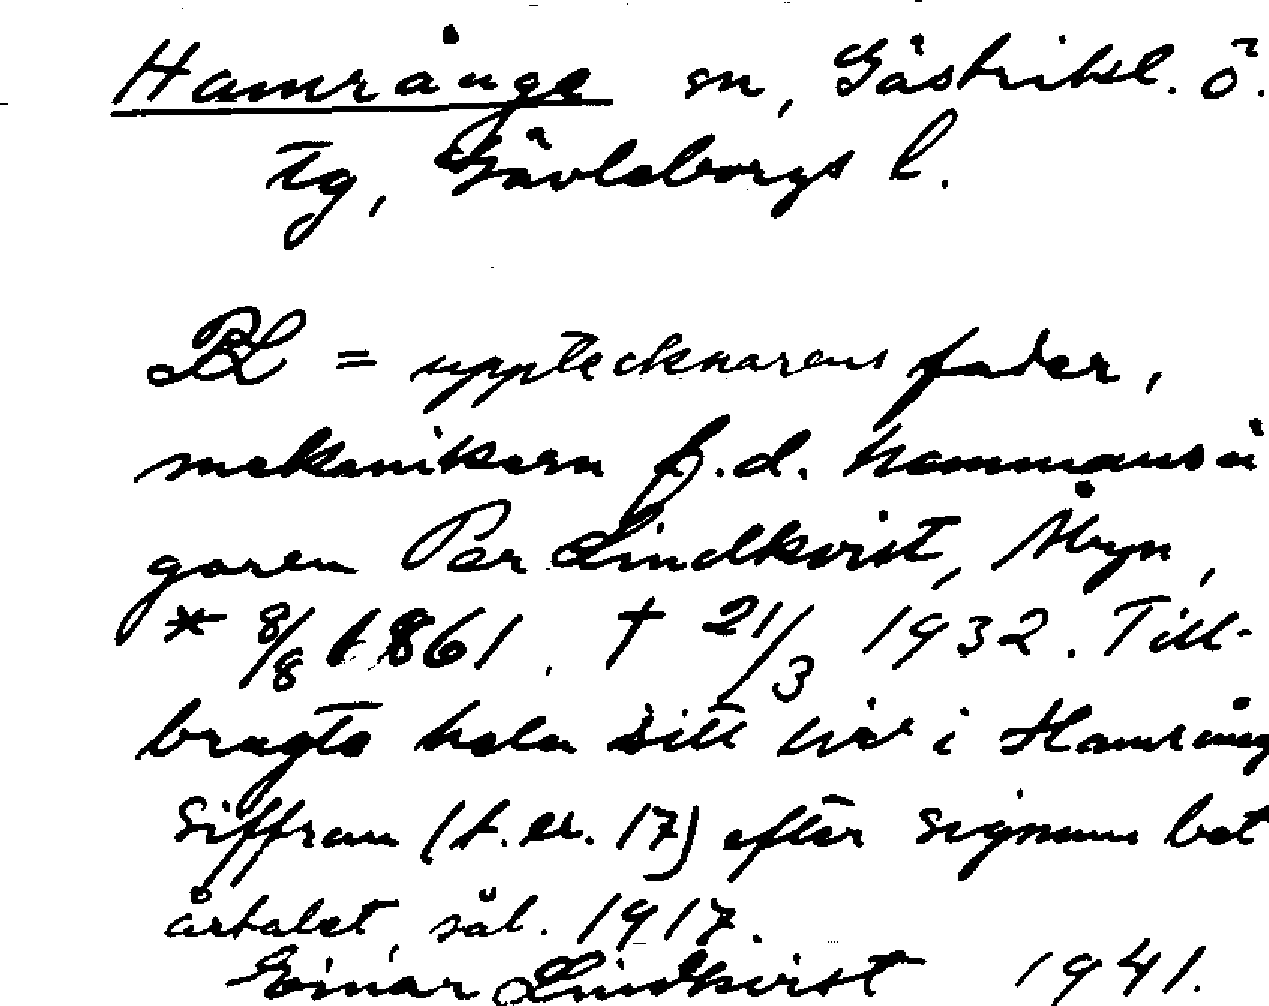 Hamrånge sn, Gästrikl. ö.
tg, Gävleborgs l.
PL = upptecknarens fader,
mekanikern f.d. hemmansä
garen Per Lindkvist, Åbyn,
* 8/8 1861. † 21/3 1932. Till-
bragte hela sitt liv i Hamrång
Siffran (t. ex. 17) efter signum bet
årtalet, sål. 1917.
Einar Lindkvist 1941.